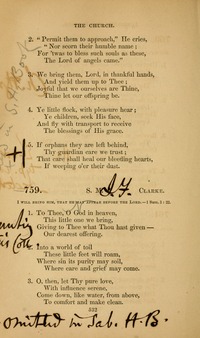 THE CHURCH.
2. "Permit them to approach," He cries,
"Nor scorn their humble name;
For 'twas to bless such souls as these,
The Lord of angels came."
3. We bring them, Lord, in thankful hands,
And yield them up to Thee;
Joyful that we ourselves are Thine,
Thine let our offspring be.
4. Ye little flock, with pleasure hear;
Ye children, seek His face,
And fly with transport to receive
The blessings of His grace.
5. If orphans they are left behind,
Thy guardian care we trust;
That care shall heal our bleeding hearts,
If weeping o'er their dust.
H
759. S. M. CLARKE.
I WILL BRING HIM, THAT HE MAY APPEAR BEFORE THE LORD.—1 Sam. 1: 22.
1. To Thee, O God in heaven,
This little one we bring,
Giving to Thee what Thou hast given—
Our dearest offering.
2. Into a world of toil
These little feet will roam,
Where sin its purity may soil,
Where care and grief may come.
3. O, then, let Thy pure love,
With influence serene,
Come down, like water, from above,
To comfort and make clean.
omitted in Sab. H. B.